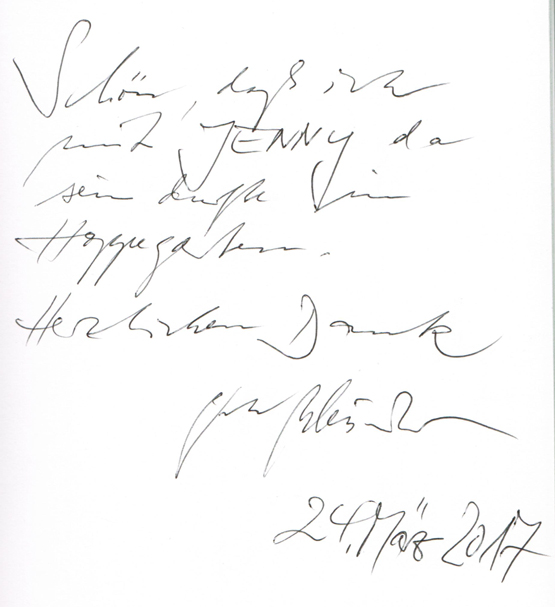 Schön, daß ich
mit JENNY da
sein durfte im
Hoppegarten.
Herzlichen Dank
24. März 2017